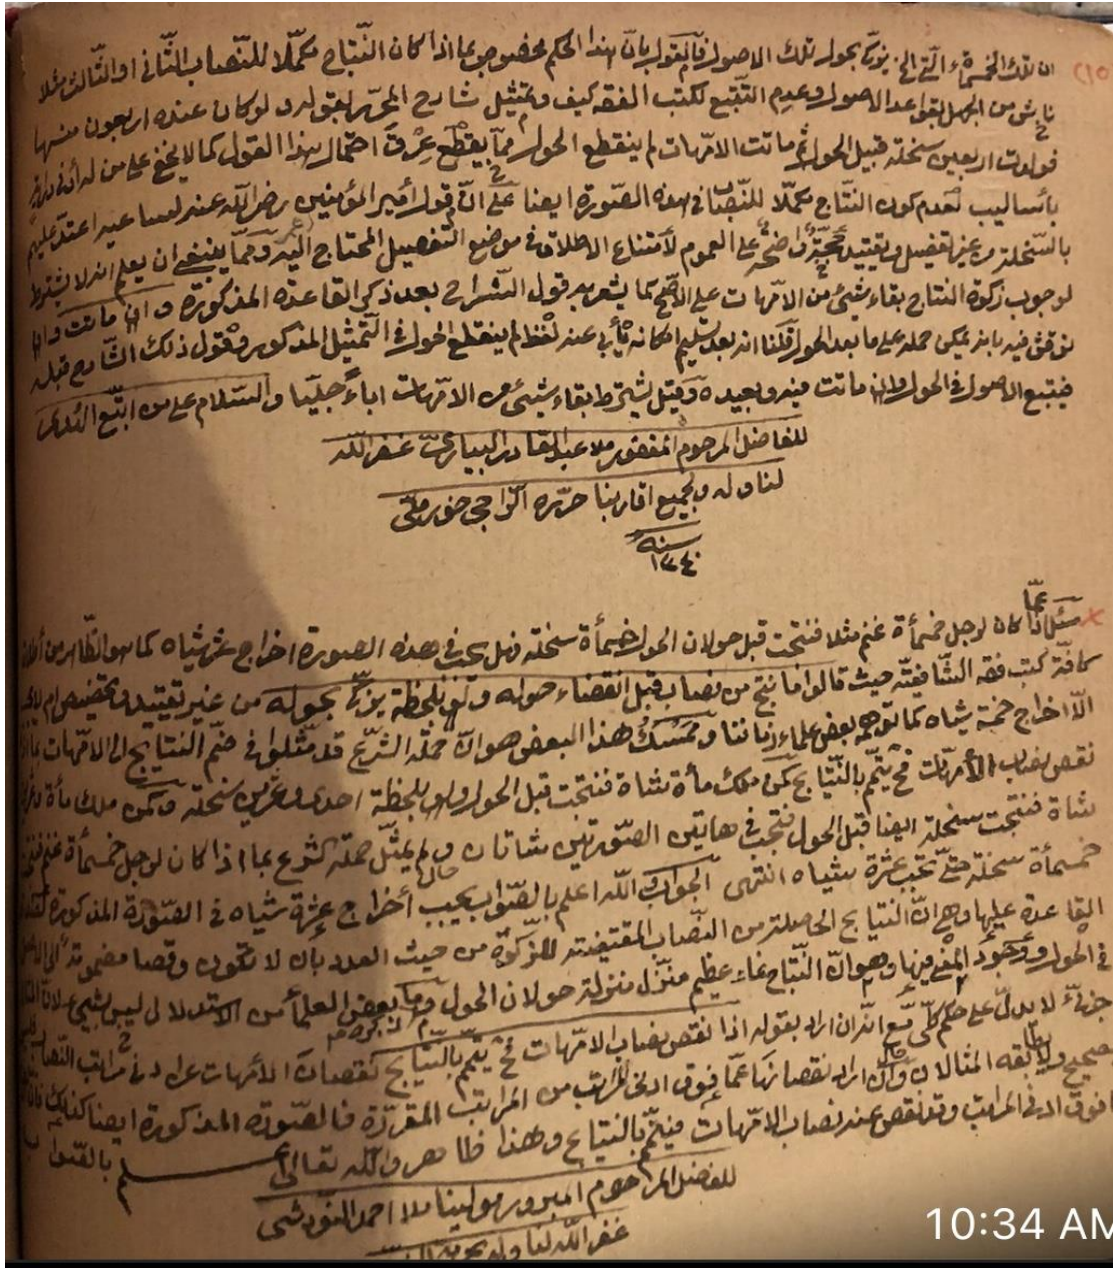 ان تلك الخمسمأة الّتى لم يزكّ بحول تلك الاصول فأن يقول بانّ هذا الحكم مخصوص بما اذا كان النّتاج مكمّلا للنّصاب الثّانى او الثّالث مثلا
ناش من الجهل بقواعد الاصول وعدم التّتبّع لكتب الفقه كيف وتمثيل شارح المحرّر بقوله ولو كان عنده اربعون منها
فولدت اربعين سخلة قبيل الحول ثم ماتت الامّهات لم ينقطع الحول ممّا يقطع عرق احتمال هذا القول كما لا يخفى على من له ادنى دراية
بأساليب لعدم كون النّتاج مكمّلا للنّصاب فى هذه الصّورة ايضا على انّ قول أمير المؤمنين رضى اللّه عنه لساعيه اعتدّ عليهم
بالسّخلة من غير تفصيل وتقييد حجّة واضحة على العموم لأمتناع الاطلاق فى موضع التّفصيل المحتاج اليه وممّا ينبغى ان يعلم انه لا يشترط
لوجوب زكوة النتاج بقاء شيئ من الامّهات على الاصحّ كما يشعر به قول الشّراح بعد ذكر القاعدة المذكورة وان ماتت وان
توقّش فيه بانه يمكن حمله على ما بعد الحول قلنا انه بعد تسليم امكانه يأبى عنه لفظ لم ينقطع الحول فى التّمثيل المذكور وقول ذلك الشّارح قبله
فيتبع الاصول فى الحول وان ماتت فيه وبعيده وقيل يشترط بقاء شيئ من الامّهات اباءً جليّا والسّلام على من اتّبع الهدى
للفاضل المرحوم المغفور ملا عبد القادر البيارى غفر اللّه
لنا وله ولجميع اقاربنا حرّره
سنه
١٣٤٠
سئل عمّا اذا كان لرجل خمسمأة غنم مثلا فنتجت قبل حولان الحول خمسمأة سخلة فهل يجب فى هذه الصورة اخراج عشر شياه كما هو الظّاهر من
كافّة كتب فقه الشّافعيّه حيث قالوا ما نتج من نصاب قبل انقضاء حوله ولو بلحظة يزكّى بحوله من غير تقييد وتخصيص ام لا يجب
الّا اخراج خمسة شياه كما توهّمه بعض علماء زماننا ومتمسّك هذا البعض هو انّ حملة الشّرع قد مثّلوا فى ضمّ النتايج الى الامّهات بما اذا
نقص نصاب الأمّهات فح يتمّ بالنّتايج كمن ملك مأة شاة فنتجت قبل الحول ولو بلحظة احدى وعشرين سخلة وكمن ملك مأة وعشرين
شاة فنتجت سخلة ايضا قبل الحول فتجب فى هاتين الصّورتين شاتان ولم يمثّل حملة الشرع بما اذا كان لرجل خمسمأة غنم فنتجت
خمسمأة سخلة حتّى تجب عشرة شياه انتهى الجواب اللّه اعلم بالصّواب يجيب أخراج عشرة شياه فى الصّورة المذكورة
القاعدة عليها وهى انّ النتايج الحاصلة من النّصاب المقتضية للزّكوة من حيث العدد بان لا تكون وقصا مضمومة الى
فى الحول ووجود المعنى فيها وهو انّ النّتاج نماء عظيم منزّل منزلة حولان الحول وما لبعض العلمأ من الاستدلال ليس بشيئ لانّ
جزئىّ لا يدلّ على حكم كلّىّ مع انّه ان اراد بقوله اذا نقص نصاب الامّهات فح يتمّم بالنتايج نقصان الأمّهات عن ادنى مراتب النّصاب
صحيح ولا يطابقه المثالان وان اراد نقصانها عمّا فوق ادنى المراتب من المراتب المقرّرة فالصّورة المذكورة ايضا كذلك
فوق ادنى المراتب وقد نقص عنه نصاب الامّهات فيتمّم بالنتايج وهذا ظاهر واللّه تعالى اعلم بالصّواب
للفضل المرحوم المبرور مولينا ملا احمد النّودشى
غفر اللّه لنا وله
10:34 AM